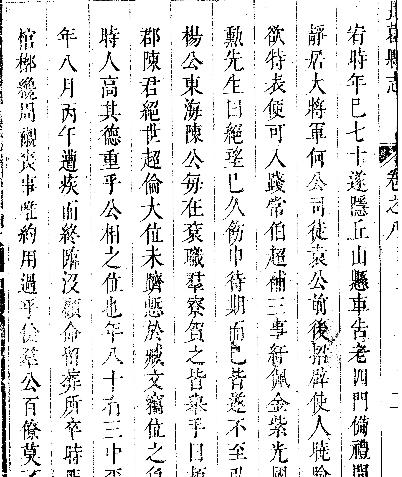 縣志 卷之八
宥時年巳七十遂隱丘山懸車告老四門備禮閑
靜居大將軍何公司徒袁公前後招辟使人曉喻
欲特表便可入踐常伯超補三事紆佩金紫光國
勳先生曰絕望巳久飾巾待期而巳皆遂不至弘
楊公東海陳公毎在袞職羣寮賀之皆舉手曰
郡陳君絕世超倫大位未躋慙於臧文竊位之負
時人高其德重乎公相之位也年八十有三中平
年八月丙午遭疾而終臨沒顧命留葬所卒時服
棺槨纔周櫬喪事唯約用過乎儉羣公百僚莫不